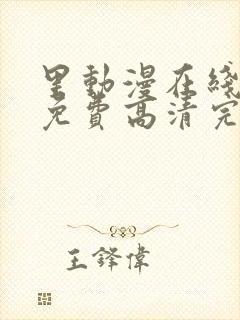 里動漫在綫
免費高清完
王鋒偉